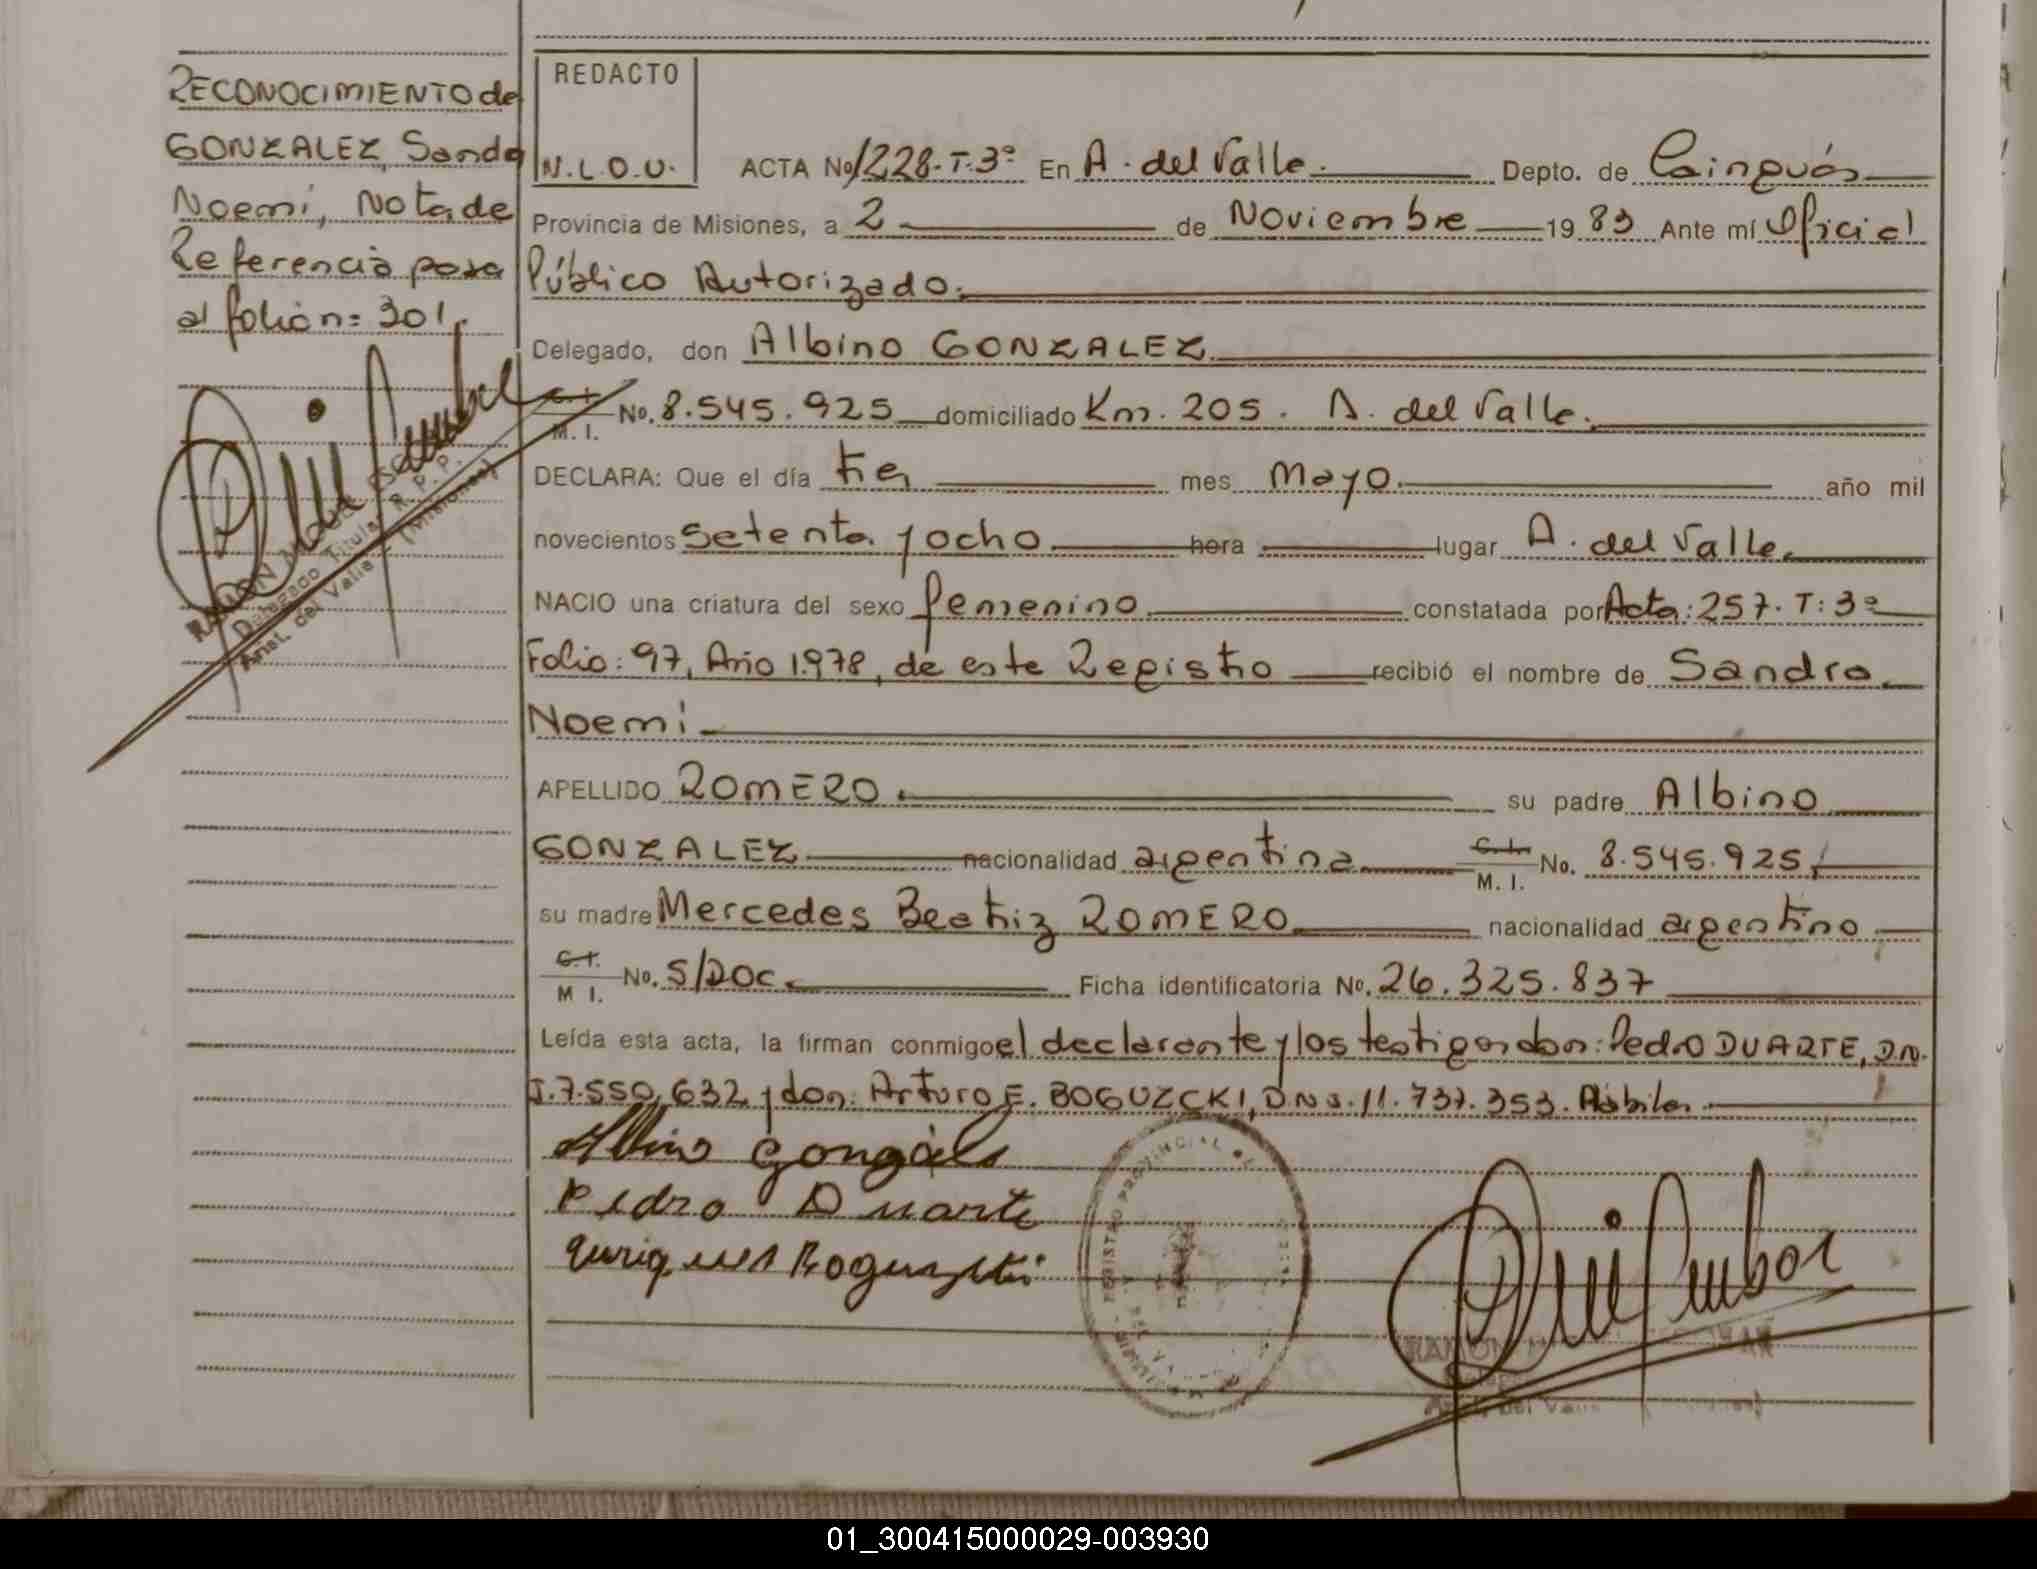 RECONOCIMIENTO de
GONZALEZ, Sandra
Noemí, Nota de
Referencia pasa
al folio n= 301.
RAMON
Delegado Titular R. P. P.
Arist. del Valle (Misiones)
REDACTO
N.L.O.U.
ACTA No 1228-T.3º En A. del Valle. Depto. de Cainguás
Provincia de Misiones, a 2 de Noviembre 1983 Ante mí Oficial
Público Autorizado.
Delegado, don Albino GONZALEZ
C.I. M. I. No. 8.545.925 domiciliado Km. 205. A. del Valle.
DECLARA: Que el día tres mes Mayo. año mil
novecientos setenta y ocho hora lugar A. del Valle.
NACIO una criatura del sexo femenino constatada por Acta: 257. T: 3º
Folio: 97, Año 1.978, de este Registro recibió el nombre de Sandra
Noemi
APELLIDO ROMERO. su padre Albino
GONZALEZ nacionalidad argentina C.I. M. I. No. 8.545.925,
su madre Mercedes Beatriz ROMERO nacionalidad argentino
C.I. M I. No. S/DOC. Ficha identificatoria No. 26.325.837
Leída esta acta, la firman conmigo el declarante y los testigos don: Pedro DUARTE, D.N.
I. 7.550.632 y don: Arturo E. BOGUZCKI, DNI. 11.737.353. Hábiles
Albino Gonzáles
Pedro Duarte
REGISTRO PROVINCIAL DE
RAMON
01_300415000029-003930